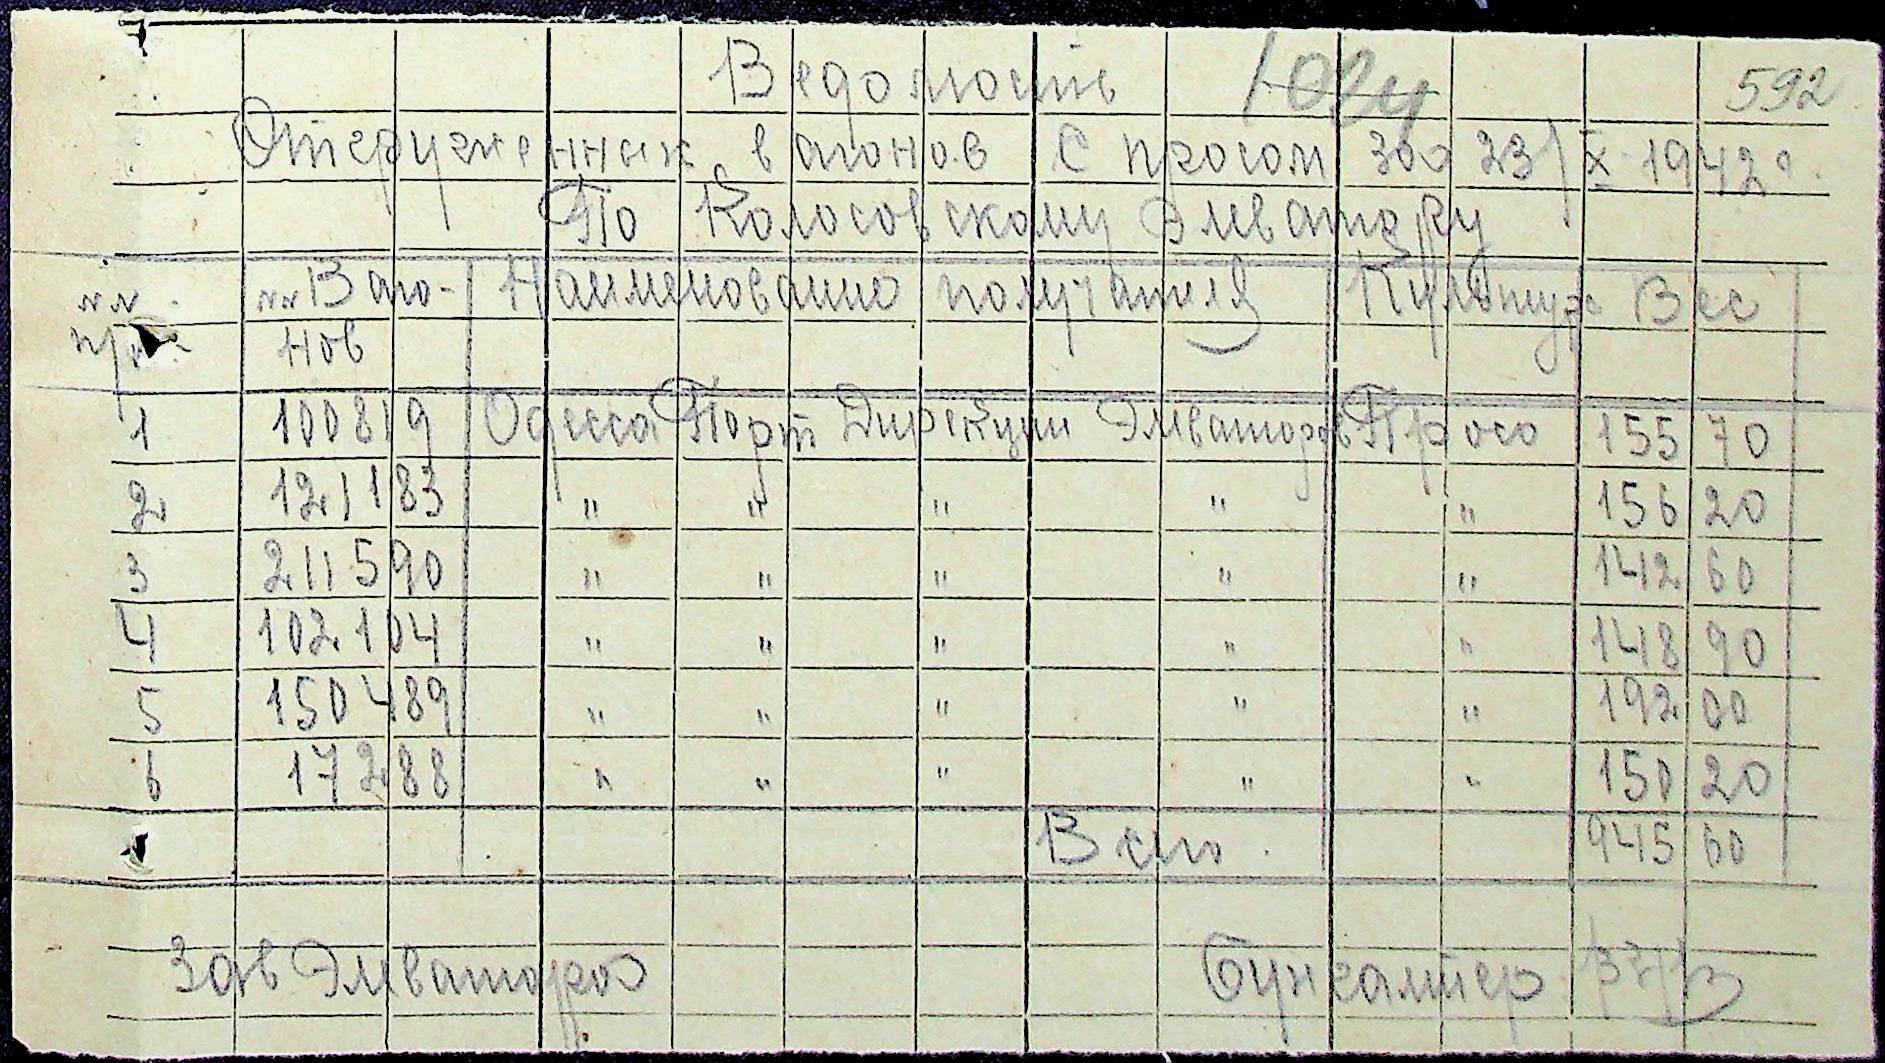 Ведомость
592
Отгруженних вагонов с просом за 23/X 1942 г.
По Колосовскому Элеватору
NN п/п NN Ваго-нов Наименование получателя Культура Вес
1 100819 Одесса Порт Дирекции Элеваторов Просо 155 70
2 121183 " " " " " 156 20
3 211590 " " " " " 142 60
4 102104 " " " " " 148 90
5 150489 " " " " " 192 00
6 17288 " " " " " 150 20
Всего. 945 60
Зав Элеватора Бухгалтер